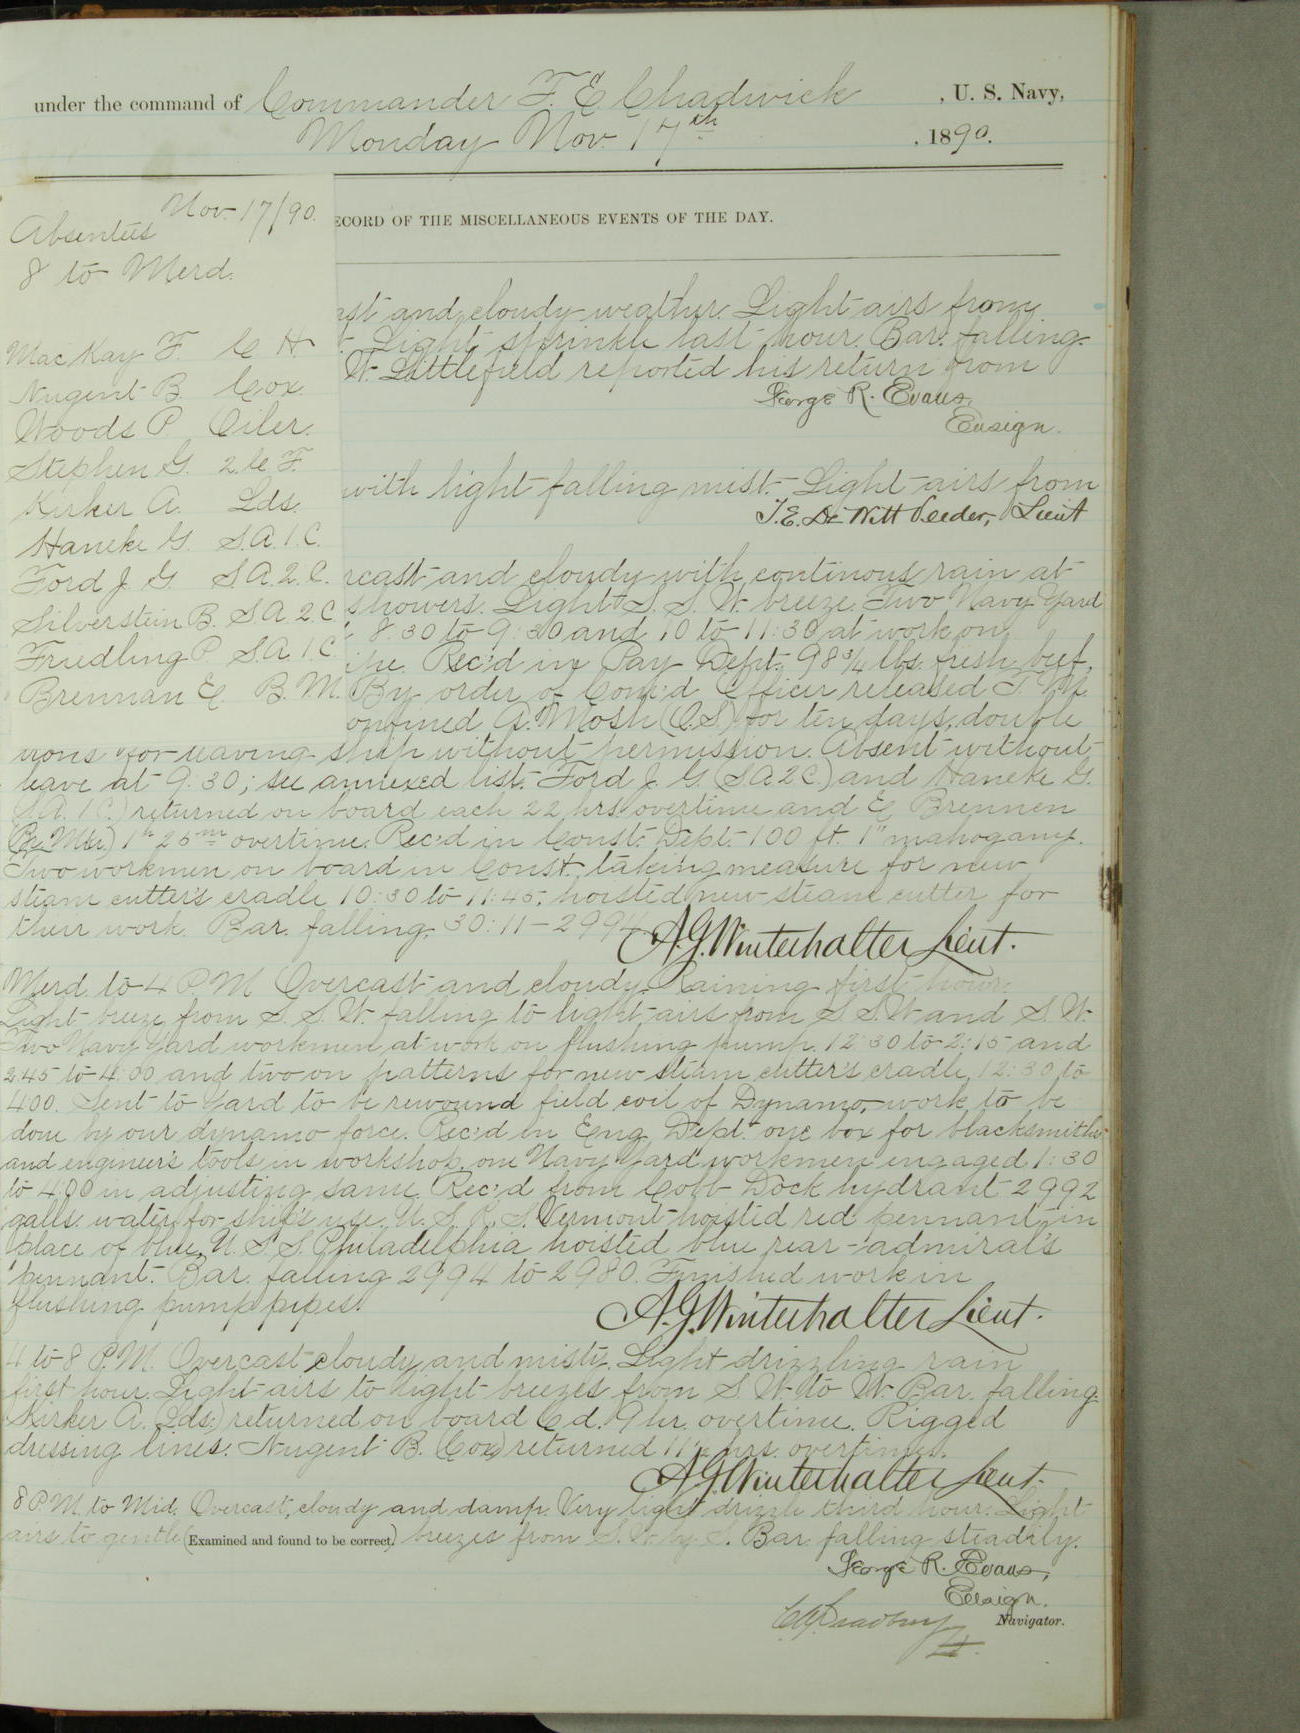 under the command of Commander F. E. Chadwick , U. S. Navy,
Monday Nov. 17th , 1890.
Nov. 17/90.
Absentees
8 to Merd.
Mac Kay F. C H
Nugent B Cox.
Woods P Oiler.
Stephen G. 2 C F.
Kirker A. Lds.
Haneke G. S.A. 1. C.
Ford J. G. S.A. 2. C.
Silverstein B. S A 2. C
Friedling P S.A. 1. C
Brennan E. B. M.
ECORD OF THE MISCELLANEOUS EVENTS OF THE DAY.
ast and cloudy weather. Light airs from
Light sprinkle last hour. Bar. falling.
W. Littlefield reported his return from
George R. Evans,
Ensign.
with light falling mist. Light airs from
T. E. De Witt Veeder, Lieut
rcast and cloudy with continous rain at
showers. Light S. S. W. breeze. Two Navy Yard
8:30 to 9:30 and 10 to 11:30 at work on
ipe. Rec'd in Pay Dept. 98 3/4 lbs. fresh beef.
By order of Com'd Officer released T.
onfined A. Mosh (O.S.) for ten days, double
irons for leaving ship without permission. Absent without
leave at 9:30; see annexed list. Ford J. G. (S.A 2 C.) and Haneke G.
(S.A. 1 C.) returned on board each 22 hrs overtime and E. Brennen
(B. Mkr.) 1h 25m overtime. Rec'd in Const. Dept. 100 ft. 1" mahogany.
Two workmen on board in Const. taking measure for new
steam cutter's cradle 10:30 to 11:45; hoisted new steam cutter for
their work. Bar. falling. 30:11 - 2994.
A.G. Winterhalter Lieut.
Merd. to 4 P M Overcast and cloudy. Raining first hour.
Light breeze from S. S. W. falling to light airs from S S.W and S. W.
Two Navy Yard workmen at work on flushing pump 12:30 to 2:15 and
2:45 to 4:00 and two on patterns for new steam cutter's cradle, 12:30 to
4:00. Sent to Yard to be rewound field coil of Dynamo, work to be
done by our dynamo force. Rec'd in Eng Dept. one box for blacksmiths
and engineer's tools in workshop, one Navy Yard workmen engaged 1:30
to 4:00 in adjusting same. Rec'd from Cobb Dock hydrant 2992
galls. water for ship's use. U. S. R. S. Vermont hoisted red pennant in
place of blue. U. S. S. Philadelphia hoisted blue rear-admiral's
pennant. Bar. falling 2994 to 2980. Finished work in
flushing pump pipes.
A.G. Winterhalter Lieut.
4 to 8 P.M. Overcast cloudy and misty. Light drizzling rain
first hour. Light airs to light breezes from S. W. to W. Bar. falling.
Kirker A. (Lds.) returned on board C d. 9 hr. overtime. Rigged
dressing lines. Nugent B. (Cox) returned 11 hrs. overtime.
A.G. Winterhalter Lieut.
8 P M. to Mid. Overcast, cloudy and damp. Very light drizzle third hour. Light
airs to gentle (Examined and found to be correct.) breezes from S. W. by S. Bar. falling steadily.
George R. Evans,
Ensign.
Navigator.